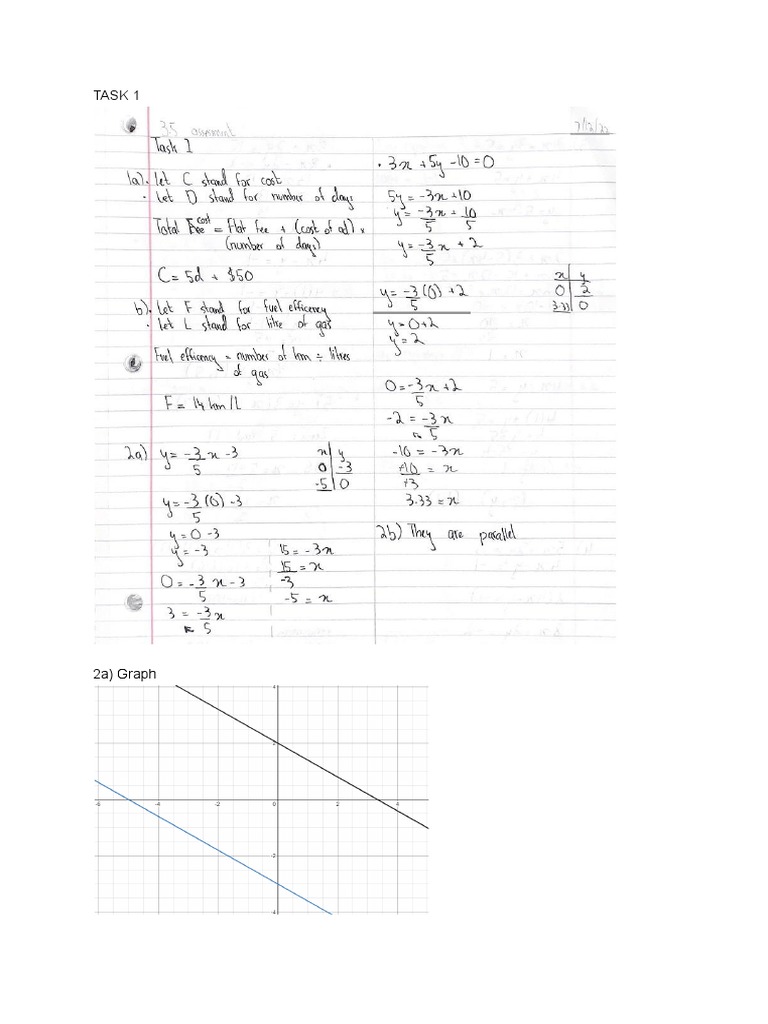 TASK 1
3.5 assessment
Task 1
1a). let C stand for cost
· Let D stand for number of days
Total Fee cost = Flat fee + (cost of ad) ×
(number of days)
C = 5d + $50
b). Let F stand for fuel efficency
· Let L stand for litre of gas
Fuel efficency = number of km ÷ litres
of gas
F = 14 km/L
2a) y = -3/5 x - 3
x | y
0 | -3
-5 | 0
y = -3/5 (0) - 3
y = 0 - 3
y = -3
0 = -3/5 x - 3
3 = -3x/5
15 = -3x
15/-3 = x
-5 = x
· 3x + 5y - 10 = 0
5y = -3x + 10
y = -3x/5 + 10/5
y = -3/5 x + 2
x | y
0 | 2
3.33 | 0
y = -3/5 (0) + 2
y = 0 + 2
y = 2
0 = -3/5 x + 2
-2 = -3x/5
-10 = -3x
-10/-3 = x
3.33 = x
2b) They are parallel
2a) Graph
4
2
-6 -4 -2 0 2 4
-2
-4